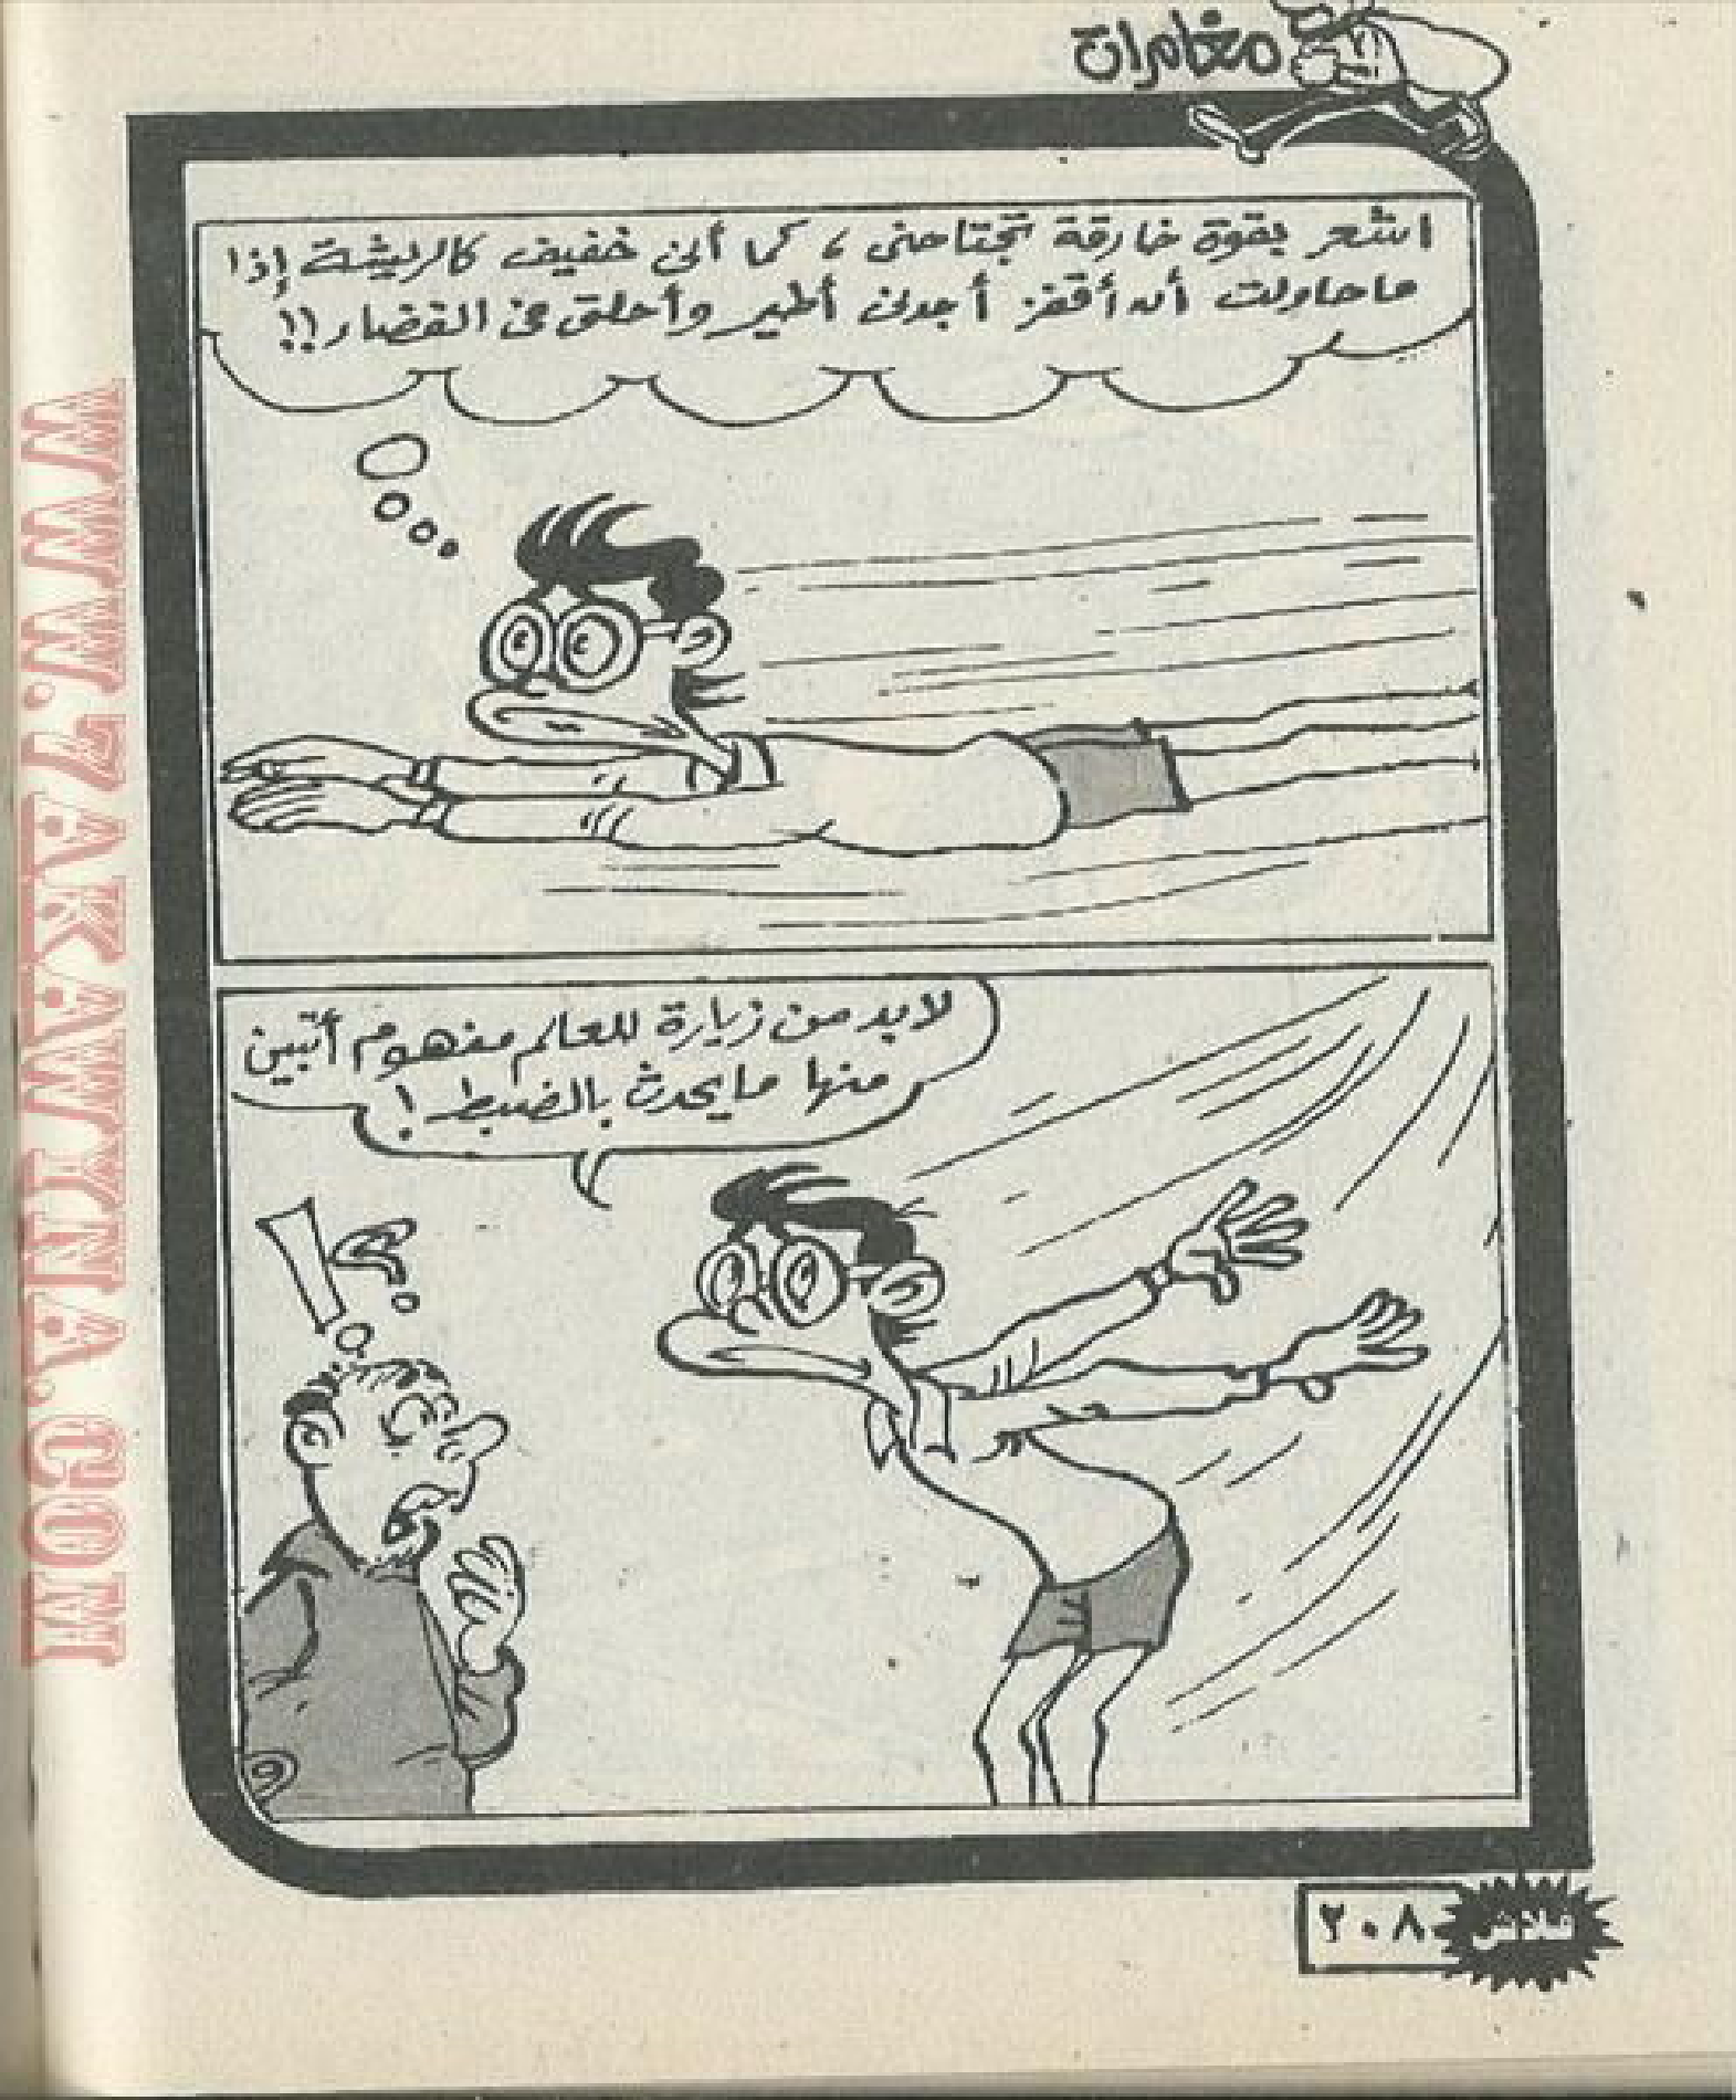 مغامرات
اشعر بقوة خارقة تجتاحنى ، كما أنى خفيف كالريشة إذا
ما حاولت أن أقفز أجدنى أطير وأحلق فى الفضاء !!
لابد من زيارة للعالم مفهوم أتبين
منها ما يحدث بالضبط !
!؟
فلاش ٢٠٨
WWW.7AKAWINA.COM